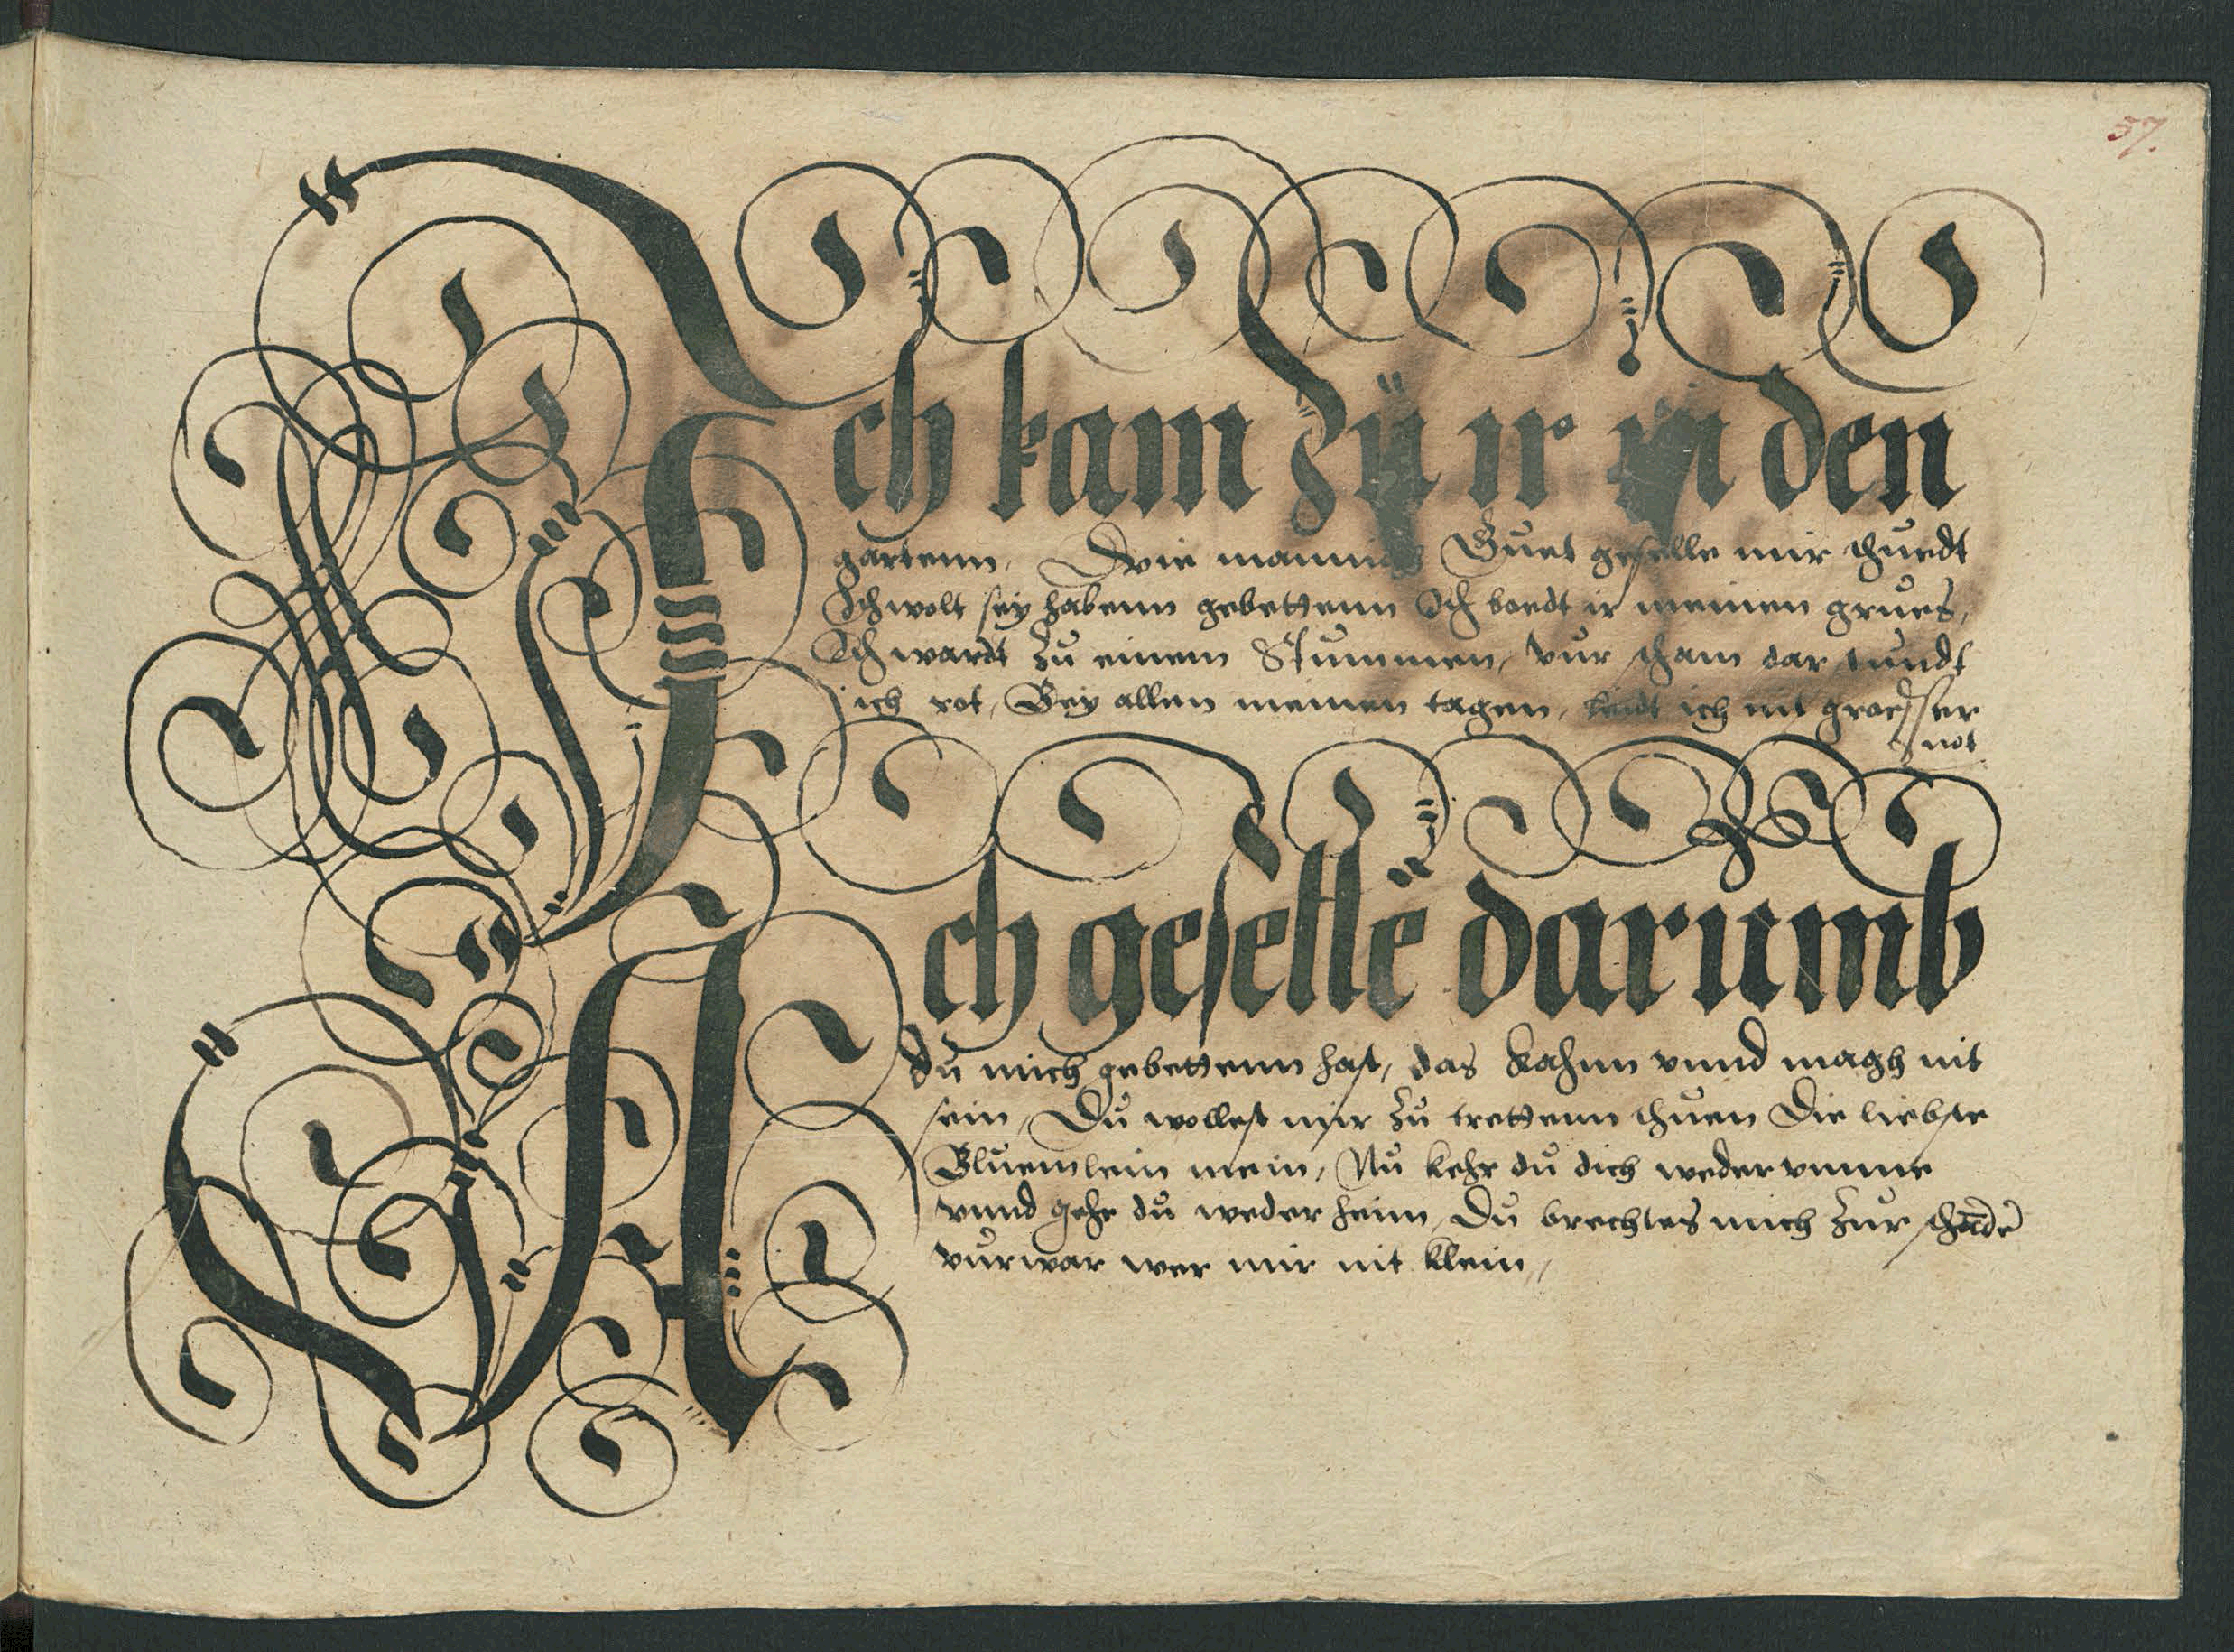 57.
Ich kam zü ir in den
gartenn, Wie mannich Guet geselle mir thuedt
Ich wolt sey habenn gebettenn Ich boedt ir meinen grues,
Ich wardt zu einem Stummen, vur scham dar stundt
ich rot, Bey allen meinen tagen, leidt ich nit groesser
not
Ach geselle darumb
du mich gebettenn hast, das kahnn vnnd magh nit
sein, Du wollest mir zu trettenn thuen Die liebste
Bluemlein mein, Nu kehr du dich weder vmme
vnnd gehe du weder heim, Du brechtes mich zur schāde
vurwar wer mir nit klein,,